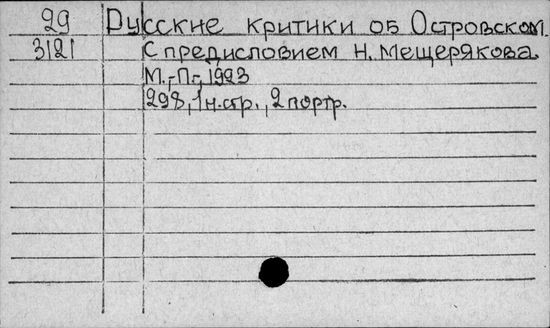 29 Русские критики об Островском.
3121 С предисловием Н. Мещерякова.
М.-Пг., 1923
298, 1 н.стр., 2 портр.